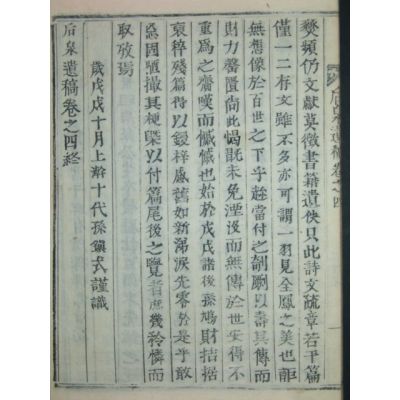 燹頻仍文獻莫徵書籍遺佚只此詩文疏章若干篇
僅一二存文雖不多亦可謂一羽見全鳳之美也詎
無想像於百世之下乎趂當付之剞劂以壽其傳而
財力罄匱尙此愒翫未免湮沒而無傳於世安得不
重爲之齎嘆而懺懺也始於戊戌諸後孫鳩財拮据
裒稡殘篇得以鋟梓感舊如新涕淚先零於是乎敢
忘固陋撮其梗槩以付篇尾後之覽者庶幾矜憐而
取攷焉
歲戊戌十月上澣十代孫鎭謹識
后泉遺稿卷之四終